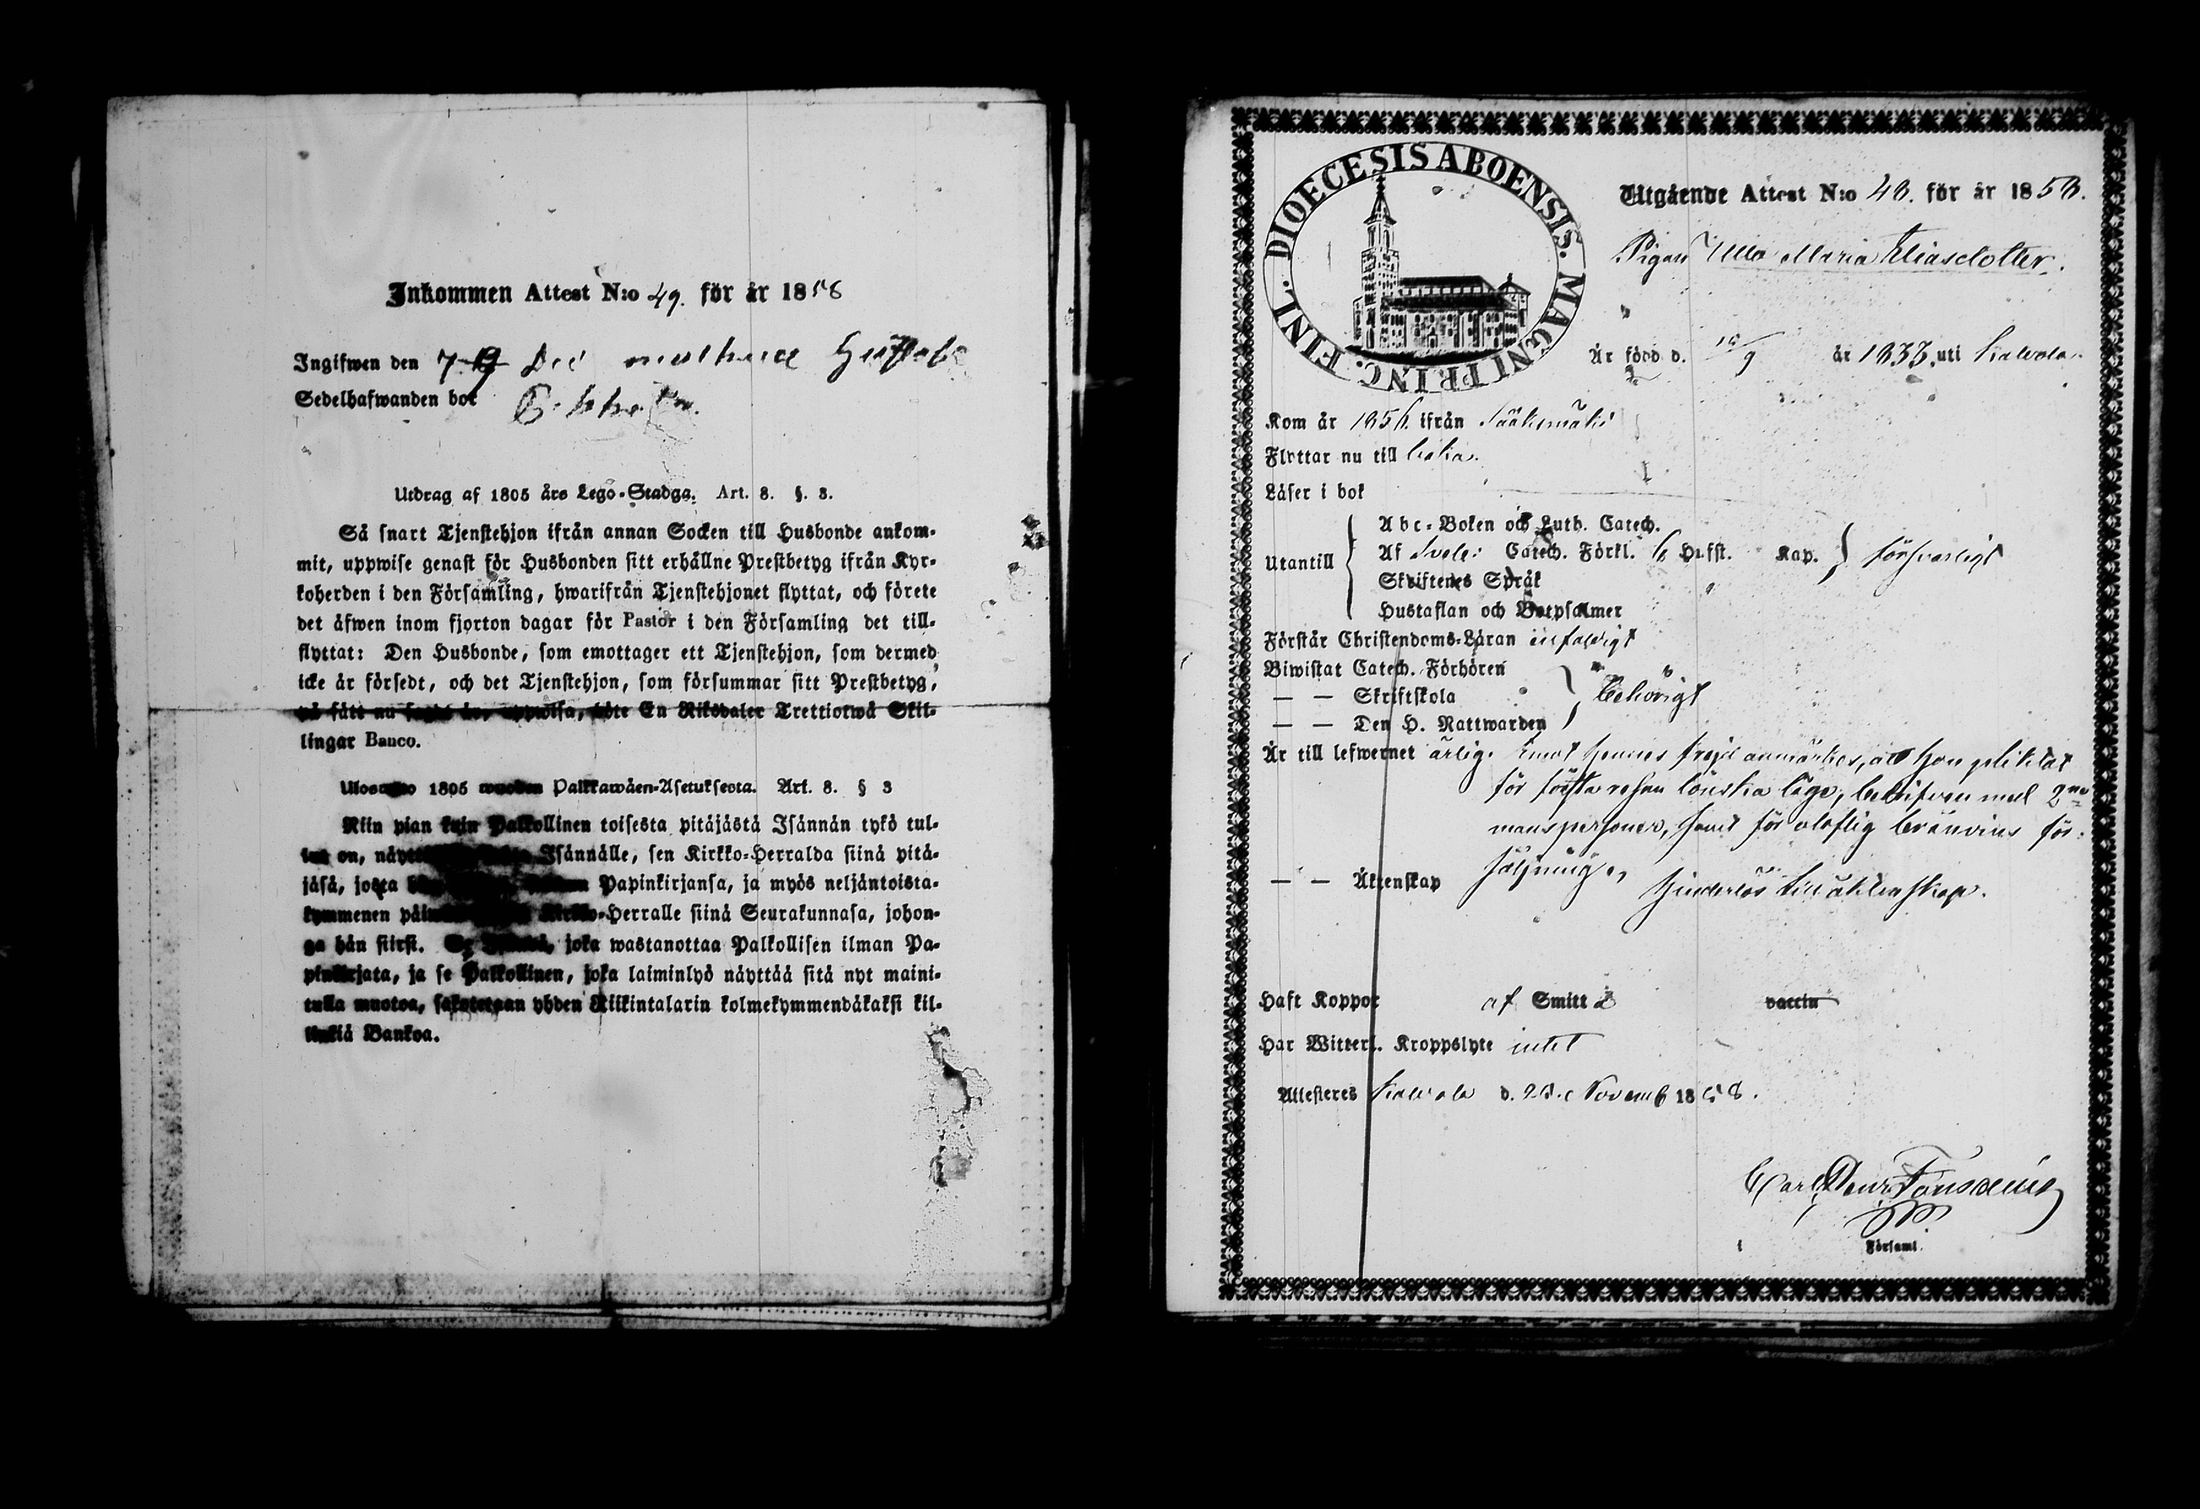 Inkommen Attest N:o 49. för år 1858
Ingifwen den 7 Dec
Sedelhafwanden bor
Utdrag af 1805 års Lego-Stadga. Art. 8. §. 3.
Så snart Tjenstehjon ifrån annan Socken till Husbonde ankom-
mit, uppwise genast för Husbonden sitt erhållne Prestbetyg ifrån Kyr-
koherden i den Församling, hwarifrån Tjenstehjonet flyttat, och förete
det äfwen inom fjorton dagar för Pastor i den Församling det till-
flyttat: Den Husbonde, som emottager ett Tjenstehjon, som dermed
icke är försedt, och det Tjenstehjon, som försummar sitt Prestbetyg,
på sätt nu sagdt är, uppwisa, böte En Riksdaler Trettiotwå Skil-
lingar Banco.
Ulosotto 1805 wuoden Palkkawäen-Asetuksesta. Art. 8. § 3
Niin pian kuin Palkollinen toisesta pitäjästä Isännän tykö tul-
lut on, Isännälle, sen Kirkko-Herralda siinä pitä-
jäsä, josta Papinkirjansa, ja myös neljäntoista-
kymmenen Kirkko-Herralle siinä Seurakunnasa, johon-
ga hän siirsi. Se joka wastanottaa Palkollisen ilman Pa-
pinkirjata, ja se Palkollinen, joka laiminlyö näyttää sitä nyt maini-
tulla muotoa, sakotetaan yhden Riikintalarin kolmekymmendäkaksi kil-
linkiä Bankoa.
DIOECESIS ABOENSIS. MAGNI PRINC. FINL.
Utgående Attest N:o 48. för år 1858.
Pigan Ulla Maria Eliasdotter.
Är född d. /9 år 1833. uti Kalvola.
Kom år 1856 ifrån Sääksmäki
Flyttar nu till
Läser i bok
Utantill
Abc-Boken och Luth. Catech.
Af Svebi: Catech. Förkl. 6 Hufst. Kap. försvarligt
Skriftenes Språk
Hustaflan och Botpsalmer
Förstår Christendoms-Läran enfaldigt
Biwistat Catech. Förhören
— — Skriftskola behörigt
— — Den H. Nattwarden
Är till lefwernet ärlig. Emot hennes frejd anmärkes, att hon pliktat
för första resan lönskaläge, bedrifven med 2ne
manspersoner, samt för olaflig bränvins för-
säljning,
— — Äktenskap hinderlös till äktenskap.
Haft Koppor af Smitta vaccin
Har Witterl. Kroppslyte intet
Attesteres Kalvola d. Novemb 1858.
Carl Henr.
i Församl.